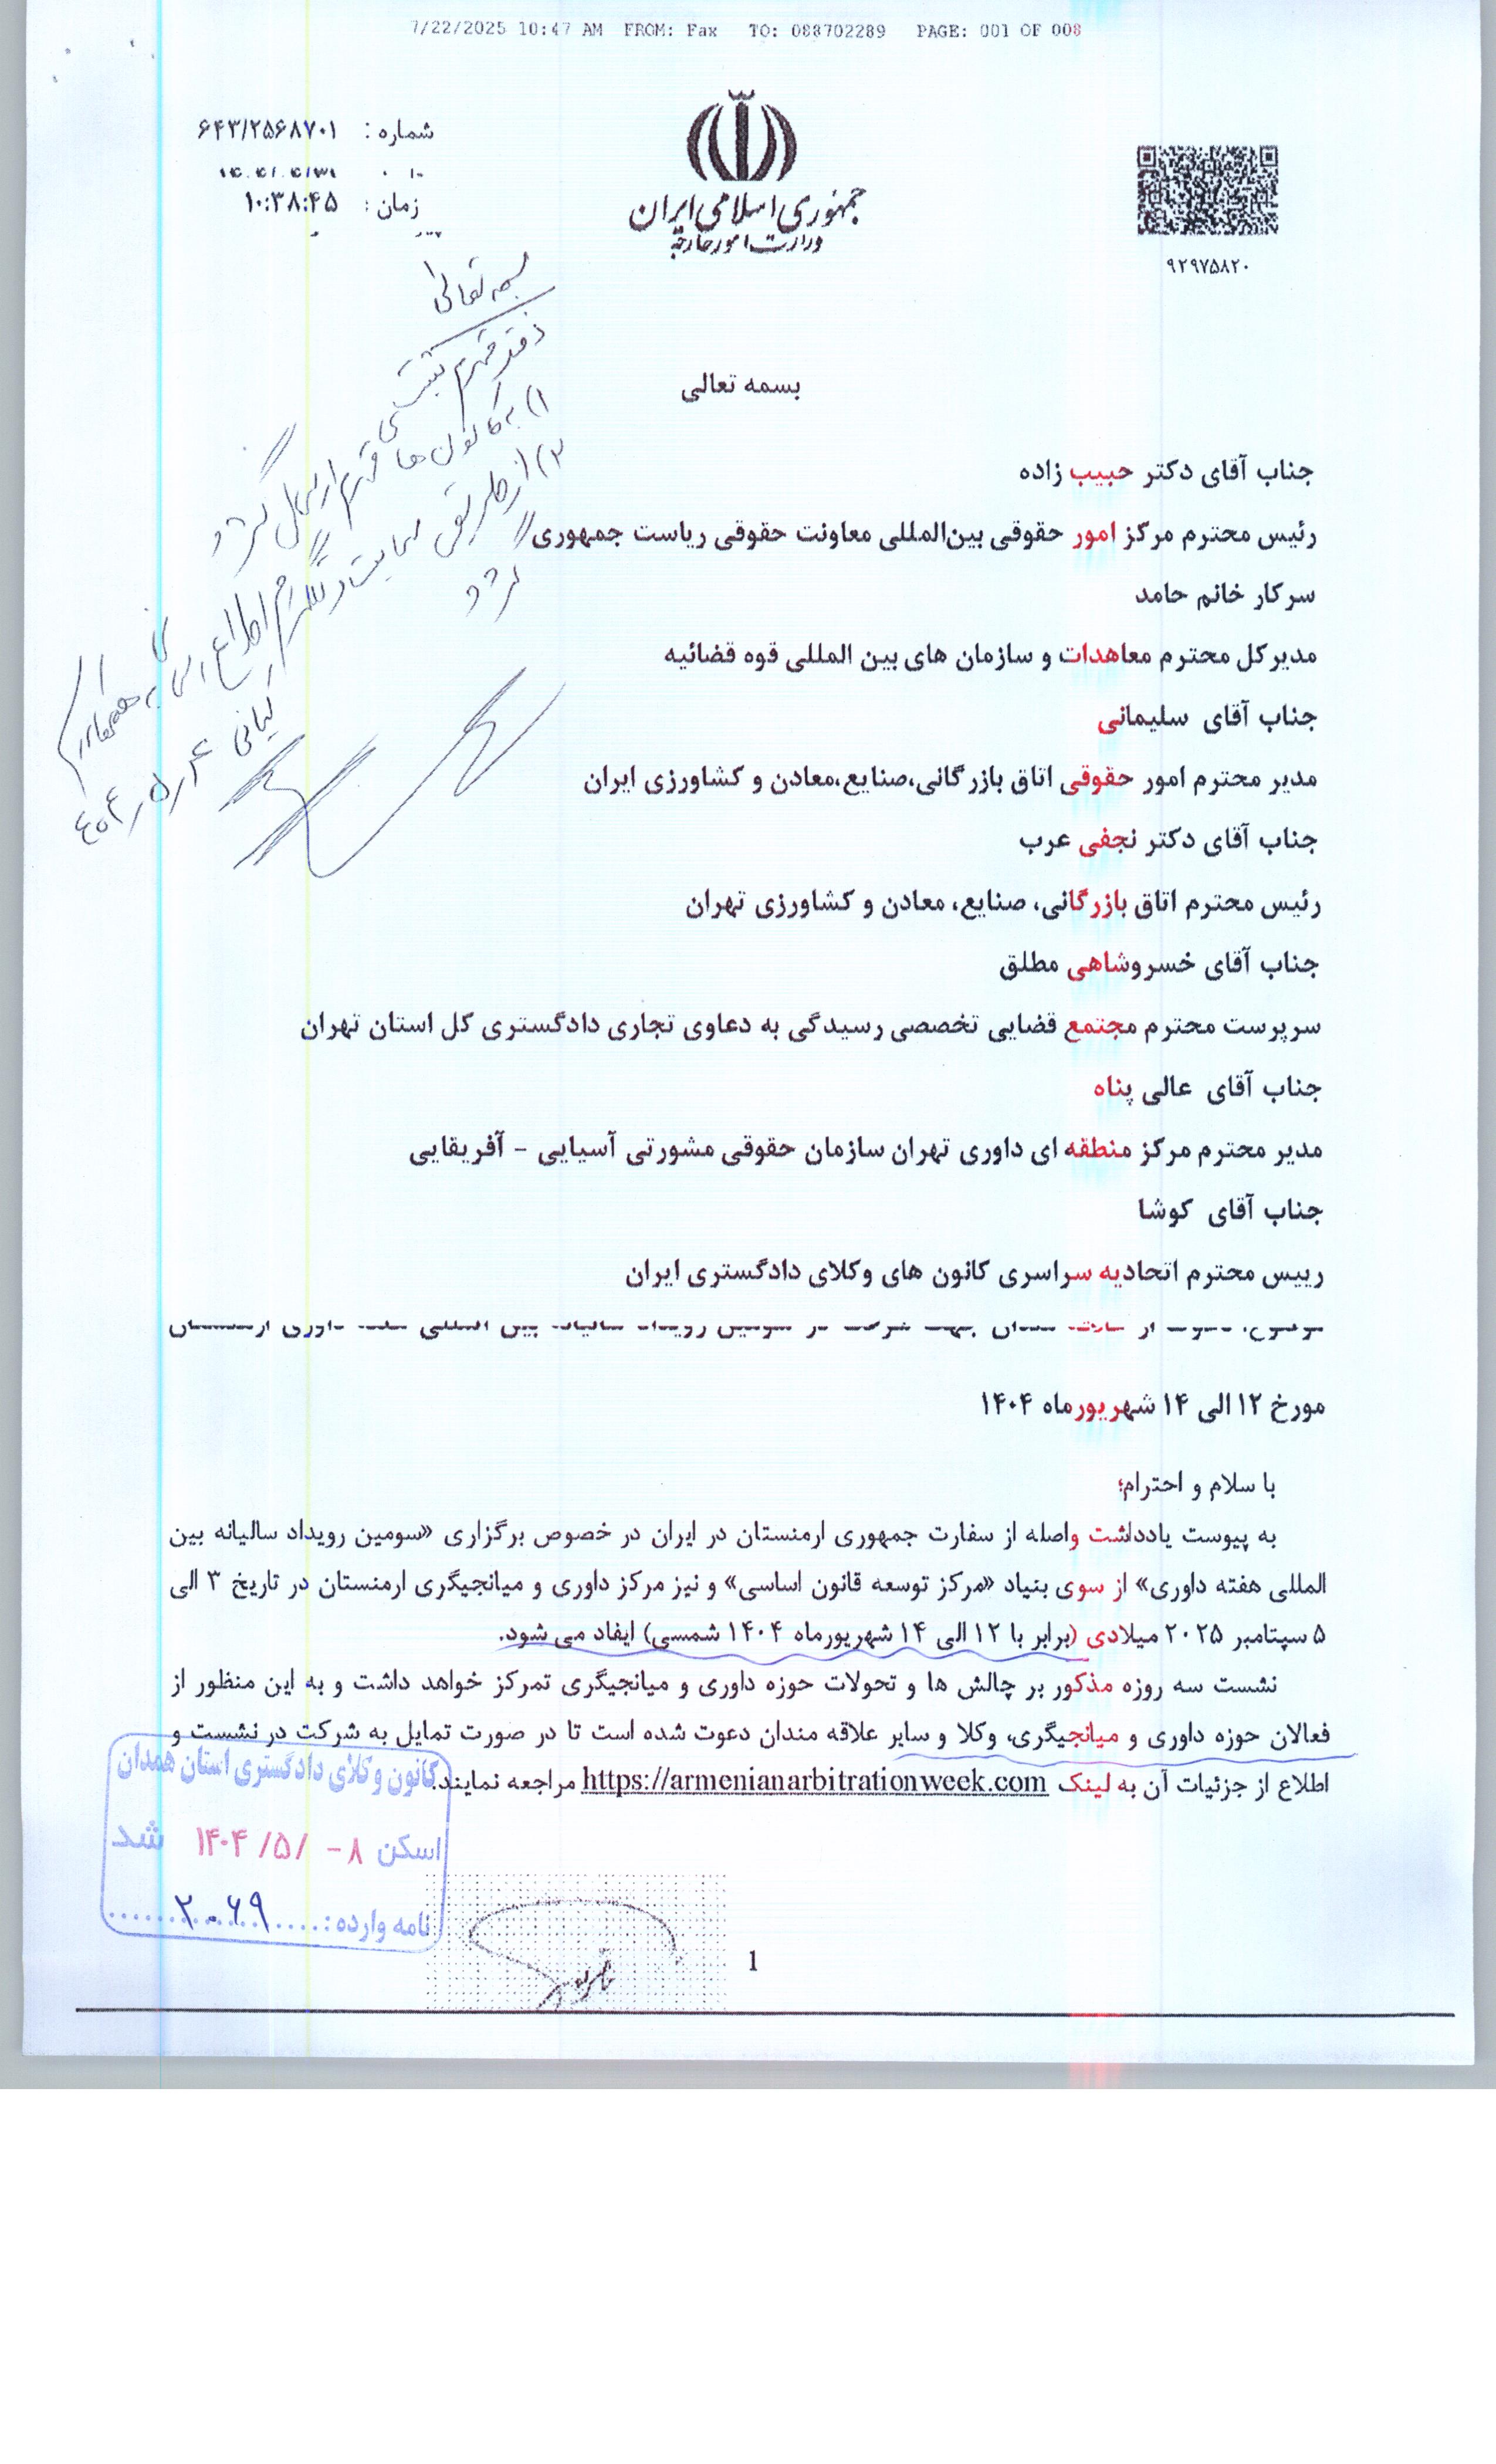 7/22/2025 10:47 AM FROM: Fax TO: 088702289 PAGE: 001 OF 008
شماره : ۶۴۳/۲۵۶۸۷۰۱
زمان : ۱۰:۳۸:۴۵
جمهوری اسلامی ایران
وزارت امور خارجه
۹۲۹۷۵۸۲۰
بسمه تعالی
دفتر محترم
۱) به کانون ها محترم ارسال گردد
۲) از طریق سایت و تلگرام اطلاع رسانی
گردد
بسمه تعالی
جناب آقای دکتر حبیب زاده
رئیس محترم مرکز امور حقوقی بین‌المللی معاونت حقوقی ریاست جمهوری
سرکار خانم حامد
مدیرکل محترم معاهدات و سازمان های بین المللی قوه قضائیه
جناب آقای سلیمانی
مدیر محترم امور حقوقی اتاق بازرگانی،صنایع،معادن و کشاورزی ایران
جناب آقای دکتر نجفی عرب
رئیس محترم اتاق بازرگانی، صنایع، معادن و کشاورزی تهران
جناب آقای خسروشاهی مطلق
سرپرست محترم مجتمع قضایی تخصصی رسیدگی به دعاوی تجاری دادگستری کل استان تهران
جناب آقای عالی پناه
مدیر محترم مرکز منطقه ای داوری تهران سازمان حقوقی مشورتی آسیایی - آفریقایی
جناب آقای کوشا
رییس محترم اتحادیه سراسری کانون های وکلای دادگستری ایران
جهت شرکت در سومین رویداد سالیانه بین المللی هفته داوری ارمنستان
مورخ ۱۲ الی ۱۴ شهریورماه ۱۴۰۴
با سلام و احترام؛
به پیوست یادداشت واصله از سفارت جمهوری ارمنستان در ایران در خصوص برگزاری «سومین رویداد سالیانه بین
المللی هفته داوری» از سوی بنیاد «مرکز توسعه قانون اساسی» و نیز مرکز داوری و میانجیگری ارمنستان در تاریخ ۳ الی
۵ سپتامبر ۲۰۲۵ میلادی (برابر با ۱۲ الی ۱۴ شهریورماه ۱۴۰۴ شمسی) ایفاد می شود.
نشست سه روزه مذکور بر چالش ها و تحولات حوزه داوری و میانجیگری تمرکز خواهد داشت و به این منظور از
فعالان حوزه داوری و میانجیگری، وکلا و سایر علاقه مندان دعوت شده است تا در صورت تمایل به شرکت در نشست و
اطلاع از جزئیات آن به لینک https://armenianarbitrationweek.com مراجعه نمایند.
کانون وکلای دادگستری استان همدان
اسکن ۸- /۵/ ۱۴۰۴ شد
نامه وارده : ۲۰۶۹
1